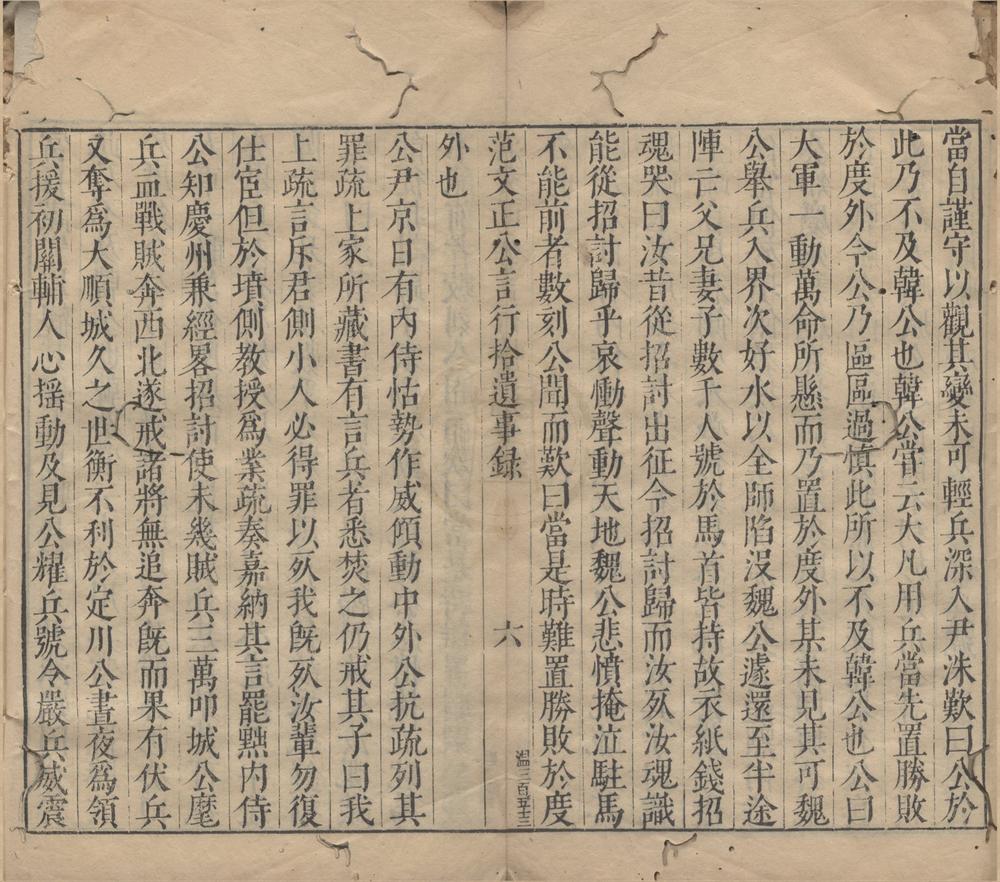 當自謹守以觀其變未可輕兵深入尹洙歎曰公於
此乃不及韓公也韓公嘗云大凡用兵當先置勝敗
於度外今公乃區區過慎此所以不及韓公也公曰
大軍一動萬命所懸而乃置於度外某未見其可魏
公舉兵入界次好水以全師陷没魏公遽還至半途
陣亡父兄妻子數千人號於馬首皆持故衣紙錢招
魂哭曰汝昔從招討出征今招討歸而汝死汝魂識
能從招討歸乎哀慟聲動天地魏公悲憤掩泣駐馬
不能前者數刻公聞而歎曰當是時難置勝敗於度
范文正公言行拾遺事録 六
外也
公尹京日有内侍怙勢作威傾動中外公抗疏列其
罪疏上家所藏書有言兵者悉焚之仍戒其子曰我
上疏言斥君側小人必得罪以死我既死汝輩勿復
仕宦但於墳側教授爲業疏奏嘉納其言罷黜内侍
公知慶州兼經畧招討使未幾賊兵三萬叩城公麾
兵血戰賊奔西北遂戒諸將無追奔既而果有伏兵
又奪爲大順城久之世衡不利於定川公晝夜爲領
兵援初關輔人心揺動及見公耀兵號令嚴兵威震